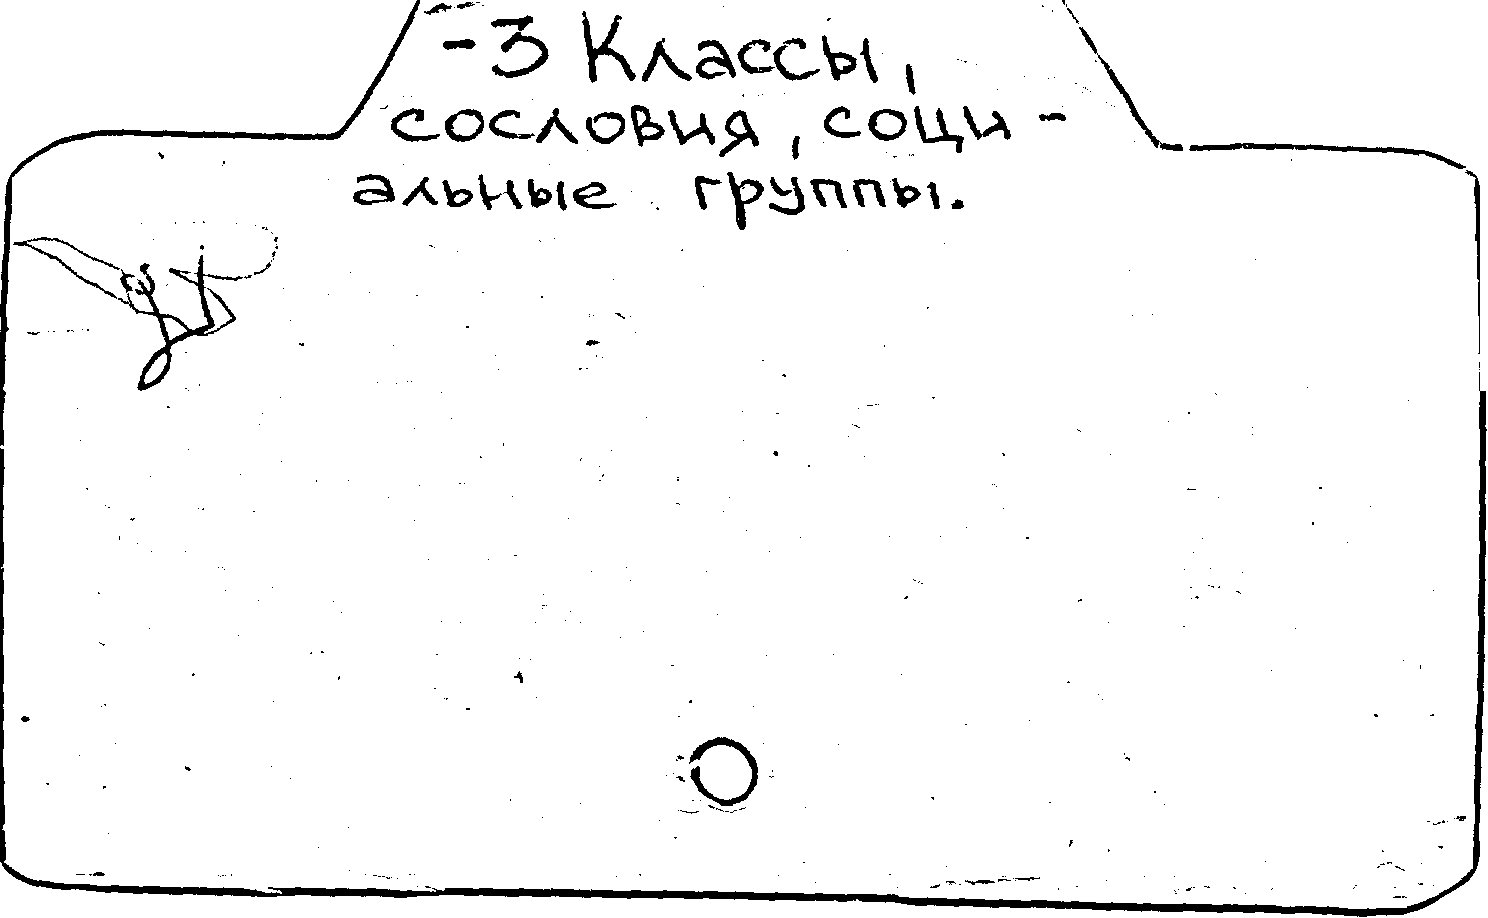 -3 Классы,
сословия, соци-
альные группы.